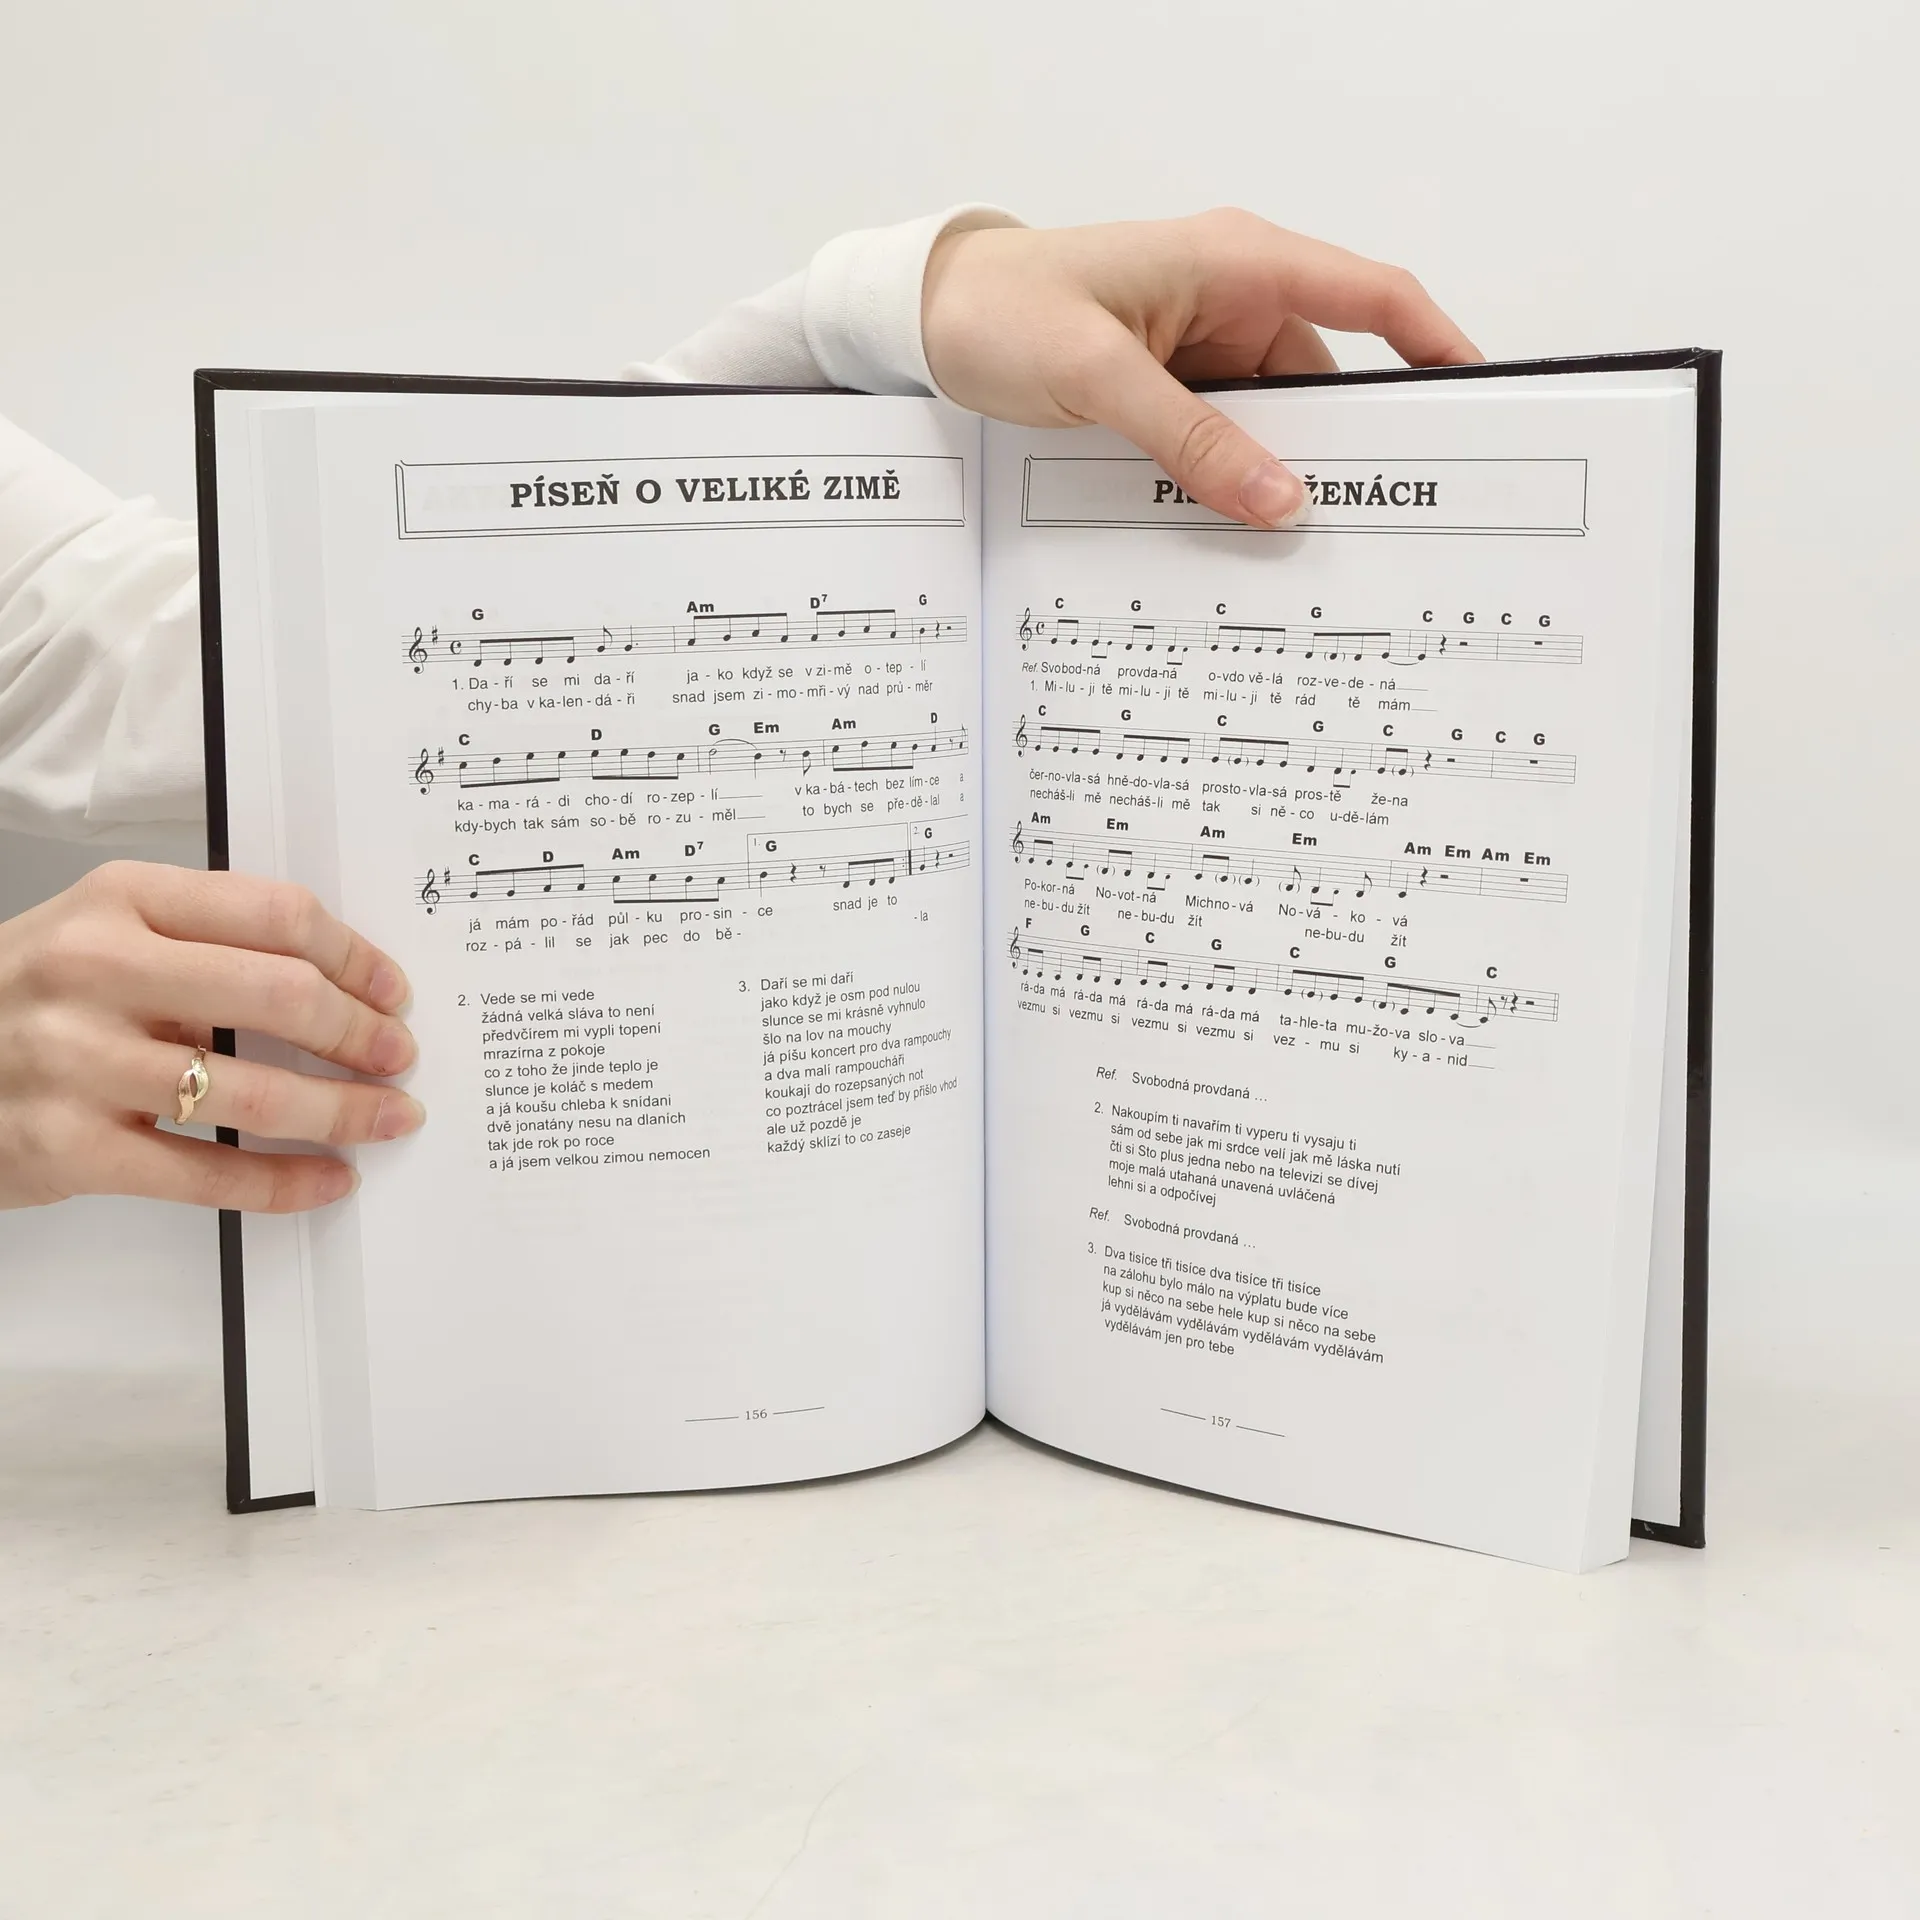 PÍSEŇ O VELIKÉ ZIMĚ
G Am D7 G
1. Da - ří se mi da - ří ja - ko když se v zi - mě o - tep - lí
chy - ba v ka - len - dá - ři snad jsem zi - mo - mři - vý nad prů - měr
C D G Em Am D
ka - ma - rá - di cho - dí ro - zep - lí v ka - bá - tech bez lím - ce a
kdy - bych tak sám so - bě ro - zu - měl to bych se pře - dě - lal a
C D Am D7 1. G 2. G
já mám po - řád půl - ku pro - sin - ce snad je to
roz - pá - lil se jak pec do bě - - la
2. Vede se mi vede
žádná velká sláva to není
předvčírem mi vypli topení
mrazírna z pokoje
co z toho že jinde teplo je
slunce je koláč s medem
a já koušu chleba k snídani
dvě jonatány nesu na dlaních
tak jde rok po roce
a já jsem velkou zimou nemocen
3. Daří se mi daří
jako když je osm pod nulou
slunce se mi krásně vyhnulo
šlo na lov na mouchy
já píšu koncert pro dva rampouchy
a dva malí rampoucháři
koukají do rozepsaných not
co poztrácel jsem teď by přišlo vhod
ale už pozdě je
každý sklízí to co zaseje
156
ŽENÁCH
C G C G C G C G
Ref. Svobod - ná provda - ná o - vdo vě - lá roz - ve - de - ná
1. Mi - lu - ji tě mi - lu - ji tě mi - lu - ji tě rád tě mám
C G C G C G C G
čer - no - vla - sá hně - do - vla - sá prosto - vla - sá pros - tě že - na
necháš - li mě necháš - li mě tak si ně - co u - dě - lám
Am Em Am Em Am Em Am Em
Po - kor - ná No - vot - ná Michno - vá No - vá - ko - vá
ne - bu - du žít ne - bu - du žít ne - bu - du žít
F G C G C G C
rá - da má rá - da má rá - da má rá - da má ta - hle - ta mu - žo - va slo - va
vezmu si vezmu si vezmu si vezmu si vez - mu si ky - a - nid
Ref. Svobodná provdaná ...
2. Nakoupím ti navařím ti vyperu ti vysaju ti
sám od sebe jak mi srdce velí jak mě láska nutí
čti si Sto plus jedna nebo na televizi se dívej
moje malá utahaná unavená uvláčená
lehni si a odpočívej
Ref. Svobodná provdaná ...
3. Dva tisíce tři tisíce dva tisíce tři tisíce
na zálohu bylo málo na výplatu bude více
kup si něco na sebe hele kup si něco na sebe
já vydělávám vydělávám vydělávám vydělávám
vydělávám jen pro tebe
157